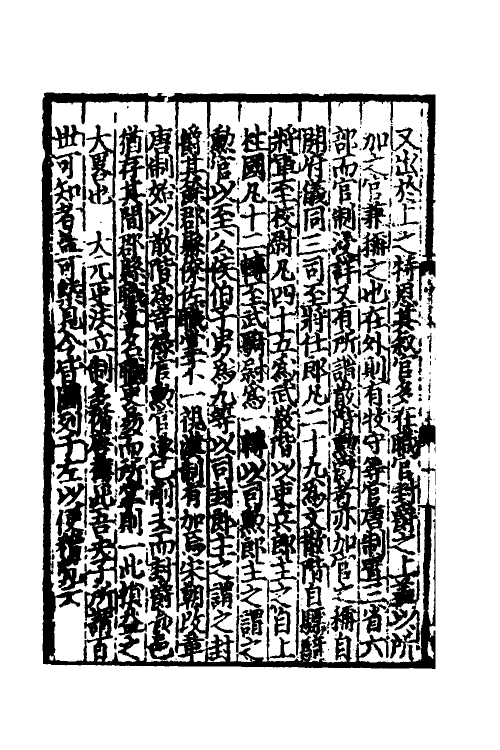 又出於上之特恩其叙官多在職官封爵之上蓋以所
加之官兼攝之也在外則有牧守等官唐制置三省六
部而官制又有所謂散階勲爵者亦加官之攝自
開府儀同三司至將仕郎凡二十九為文散階自驃騎
將軍至校尉凡四十五為武散階以吏兵郎主之自上
柱國凡十二轉至武騎尉為一轉以司勲郎主之謂之
勲官以至公侯伯子男為九等以司封郎主之謂之封
爵其餘郡縣僚佐職掌不一視漢制有加焉宋朝改章
唐制始以散階為寄祿官勲官遂已削去而封爵食邑
猶存其間郡縣職掌名職更易而所掌則一此損益之
大畧也 大元更法立制多循唐舊此吾夫子所謂百
世可知者蓋可槩見今皆圖列于左以便稽覽云